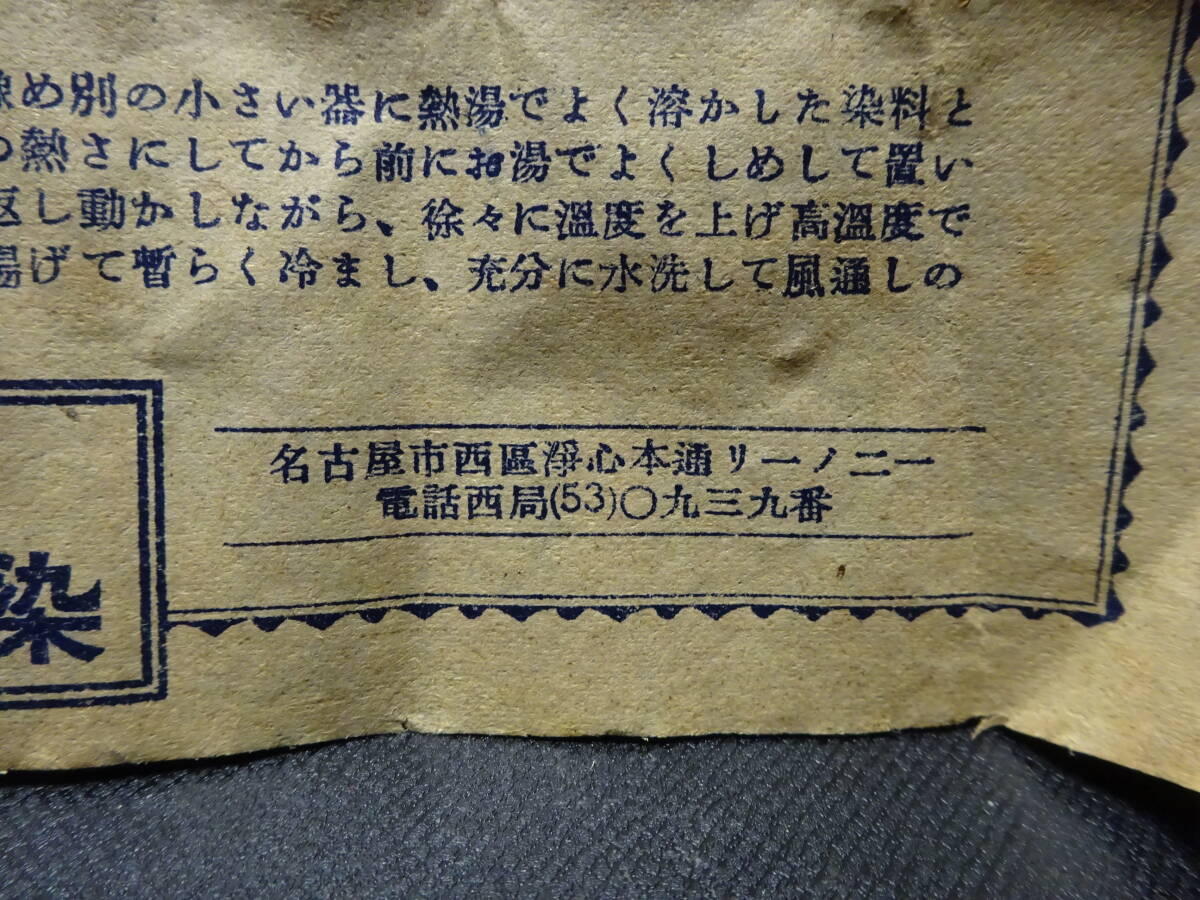 め別の小さい器に熱湯でよく溶かした染料と
の熱さにしてから前にお湯でよくしめして置い
返し動かしながら、徐々に溫度を上げ高溫度で
揚げて暫らく冷まし、充分に水洗して風通しの
名古屋市西區淨心本通リ一ノ二一
電話西局(53)〇九三九番
染